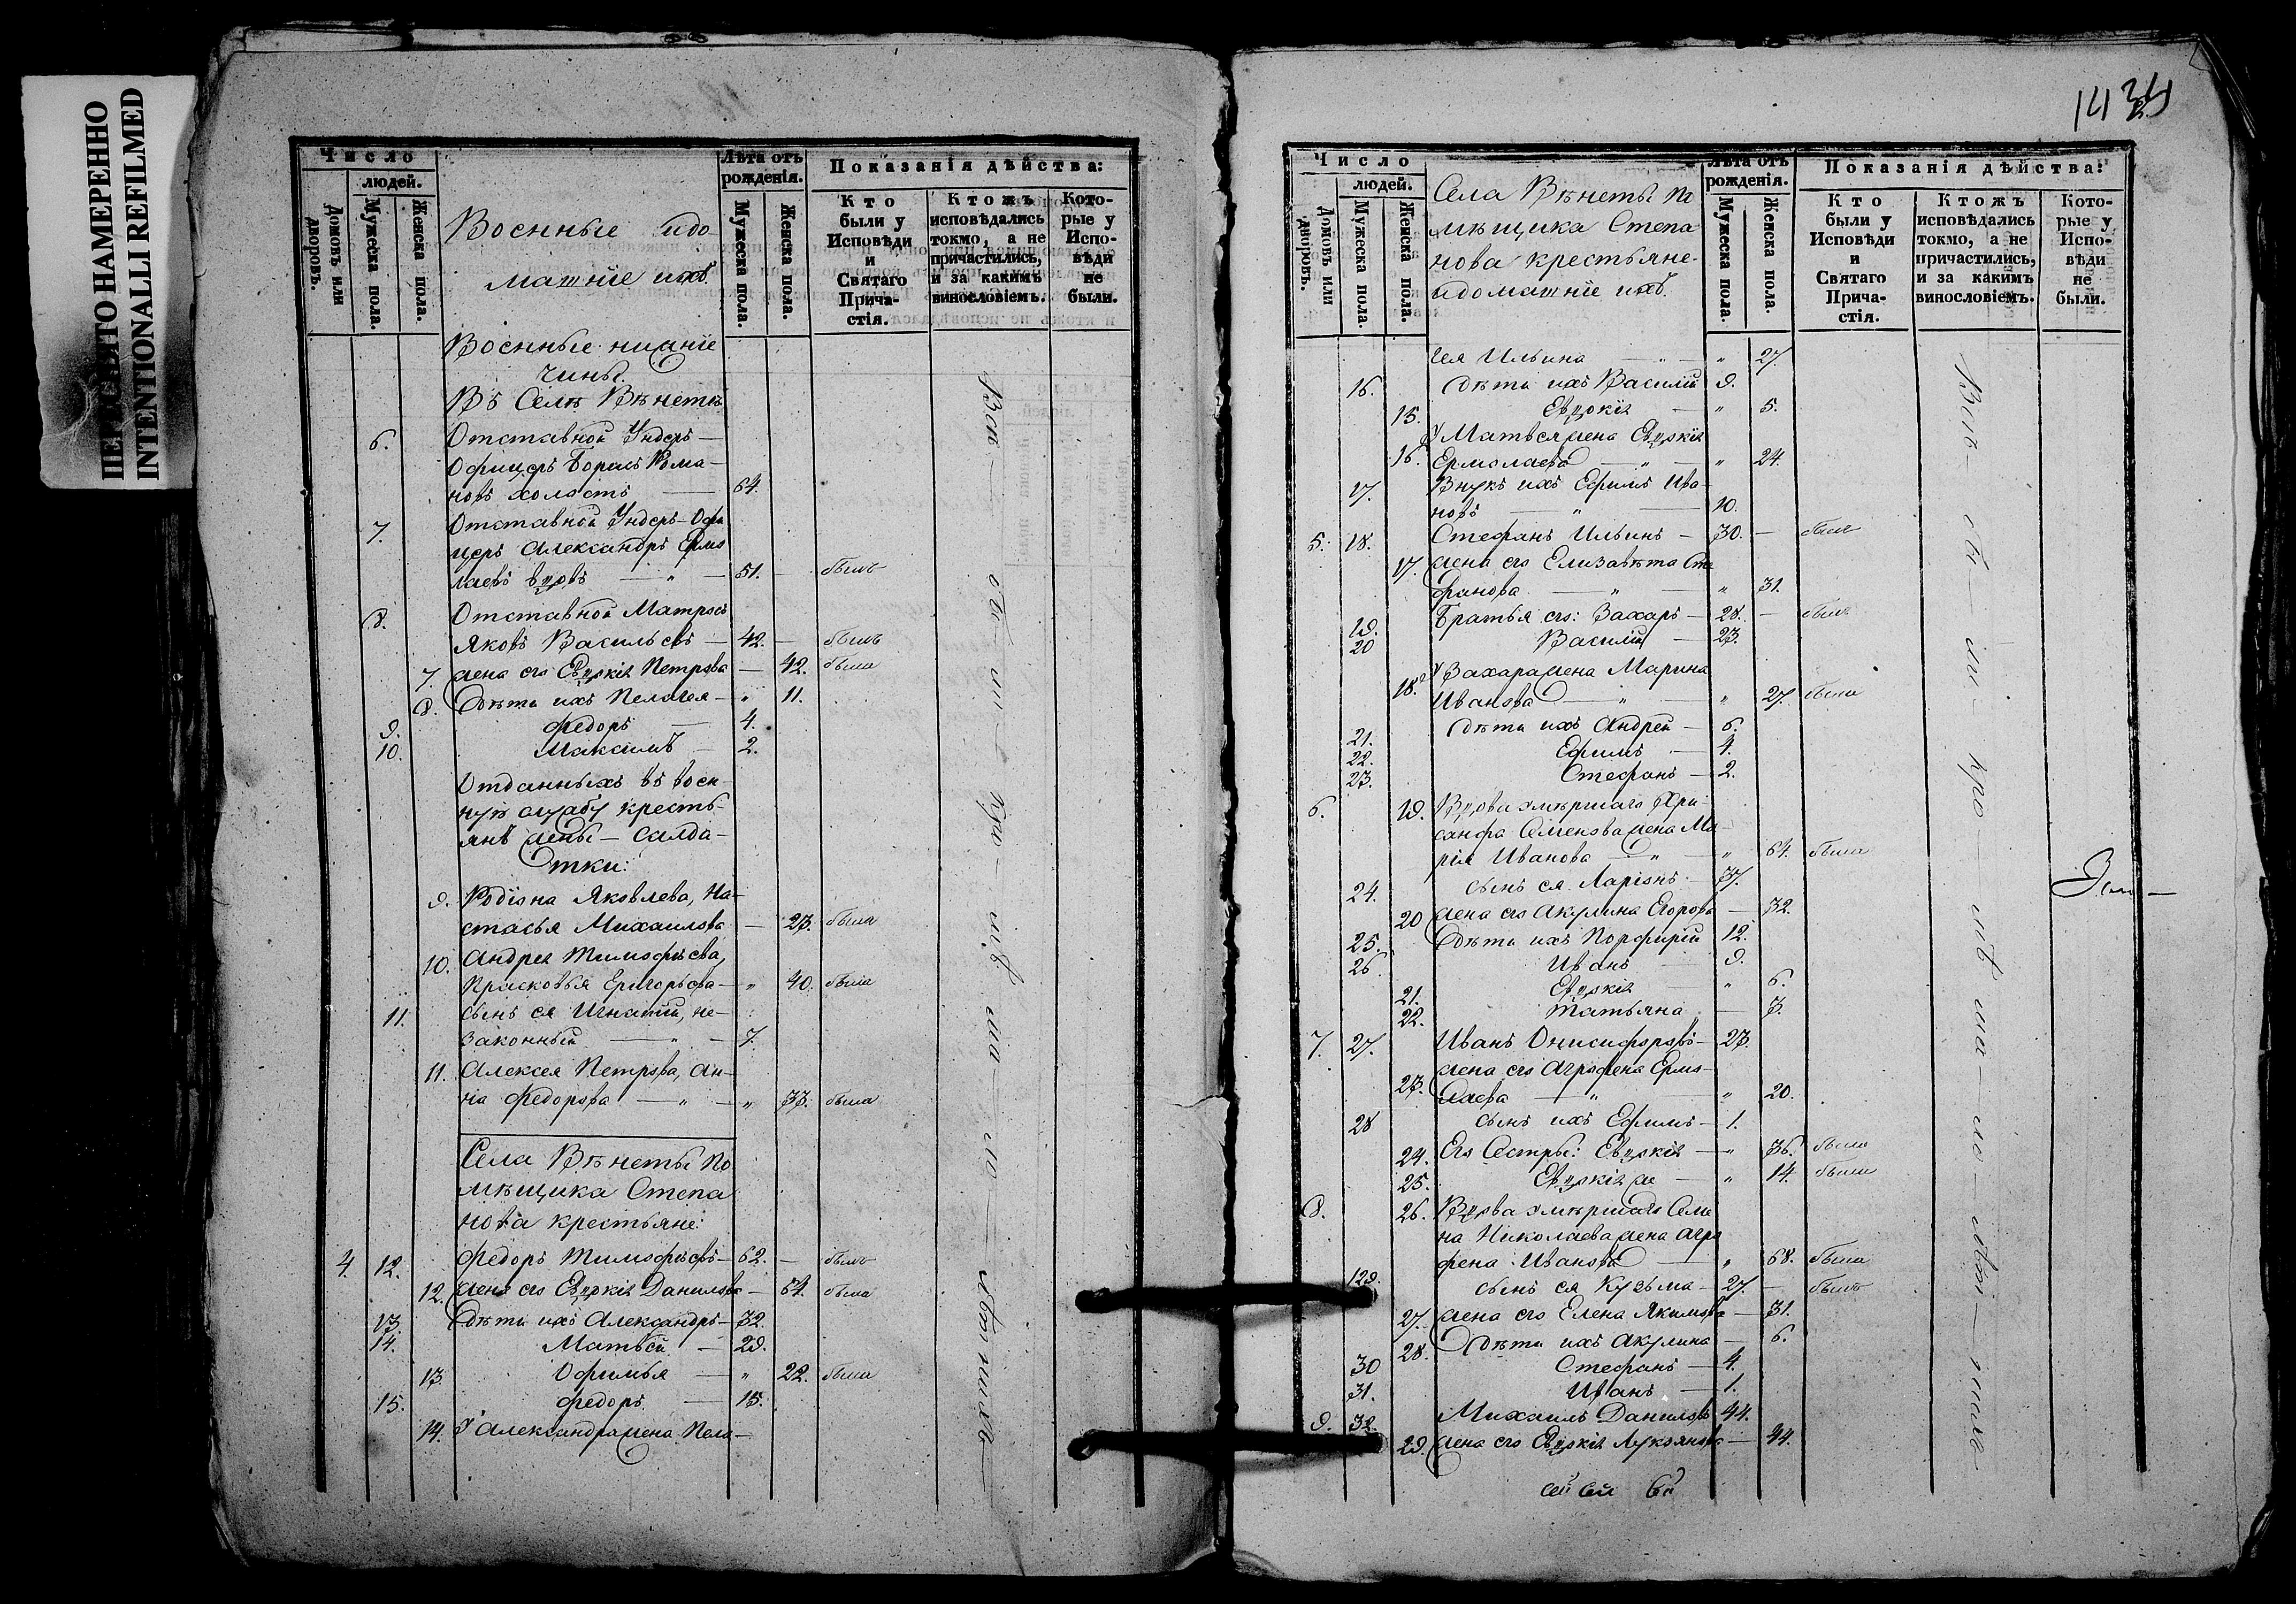 ПЕРЕСНЯТО НАМЕРЕННО
INTENTIONALLI REFILMED
Число
людей.
Домовъ или дворовъ.
Мужеска пола.
Женска пола.
Военные и до-
машніе ихъ.
Лѣта отъ рожденія.
Мужеска пола.
Женска пола.
Показанія дѣйства:
Кто были у Исповѣди и Святаго Прича-стія.
Ктожъ исповѣдались токмо, а не причастились, и за какимъ винословіемъ.
Кото-рые у Испо-вѣди не были.
Военные нижніе
чины.
Въ Селѣ Вѣнетѣ
6. Отставной Ундеръ-
Офицеръ Борисъ Рома-
новъ холостъ — 64.
7. Отставной Ундеръ-Офи
церъ Александръ Ермо
лаевъ вдовъ — " — 51. — былъ
8. Отставной Матросъ
Яковъ Васильевъ — 42. — былъ
7. жена его Евдокія Петрова — 42. была
8. Дѣти ихъ Пелагея — " 11.
9. Федоръ — 4.
10. Максимъ — 2.
Отданныхъ въ воен-
ную службу кресть-
янъ жены — Салда-
тки:
9. Родіона Яковлева, На-
стасья Михаилова — 23. была
10. Андрея Тимофѣева,
Прасковья Григорьева — " 40. была
11. сынъ ея Игнатій, не-
законный — " — 7.
11. Алексея Петрова, Ан-
на Федорова — " — " 33. была
Села Вѣнеты По
мѣщика Степа
нова крестьяне:
4. 12. Федоръ Тимофѣевъ — 62. — былъ
12. жена его Евдокія Данилова — 54. была
13. Дѣти ихъ Александръ — 32.
14. Матвей — 29.
13. Офимья — " 22. была
15. Федоръ — 15.
14. У Александра жена Пела-
1434
Число
людей.
Домовъ или дворовъ.
Мужеска пола.
Женска пола.
Села Вѣнеты По
мѣщика Степа
нова крестьяне
и домашніе ихъ.
Лѣта отъ рожденія.
Мужеска пола.
Женска пола.
Показанія дѣйства:
Кто были у Исповѣди и Святаго Прича-стія.
Ктожъ исповѣдались токмо, а не причастились, и за какимъ винословіемъ.
Кото-рые у Испо-вѣди не были.
гея Ильина — " — " 27.
16. Дѣти ихъ Василій 9.
15. Евдокія — " 5.
У Матвея жена Евдокія
16. Ермолаева — " — " 24.
17. Внукъ ихъ Ефимъ Ива-
новъ — " — 10.
5. 18. Стефанъ Ильинъ — 30. — былъ
17. жена его Елизавѣта Сте
фанова — " — " 31.
19. Братья его: Захаръ — 28. — былъ
20 Василій — 23.
У Захара жена Марина
18. Иванова — " — " 27. была
21. Дѣти ихъ Андрей — 6.
22. Ефимъ — 4.
23. Стефанъ — 2.
6. 19. Вдова умершаго Хри-
санфа Семенова жена Ма-
рія Иванова — " — " 64. была
24. сынъ ея Ларіонъ — 37.
20 жена его Акулина Егорова — 32.
25. Дѣти ихъ Порфирій 12.
26. Иванъ — 9.
21. Евдокія — " 6.
22. Татьяна — 3.
7. 27. Иванъ Онисифоровъ — 23.
жена его Агрофена Ермо-
23. лаева — " — " 20.
28 сынъ ихъ Ефимъ — 1.
24. Его Сестры: Евдокія — " 36. была
25. Евдокія же — " 14. была
8. 26. Вдова умѣршаго Семе
на Николаева жена Агро
фена Иванова — " 68. была
129. сынъ ея Кузьма — 27. — былъ
27. жена его Елена Якимова — 31.
28. Дѣти ихъ Акулина — 6.
30 Стефанъ — 4.
31. Иванъ — 1.
9. 32. Михаилъ Даниловъ 44.
29. жена его Евдокія Лукоянова — 44.